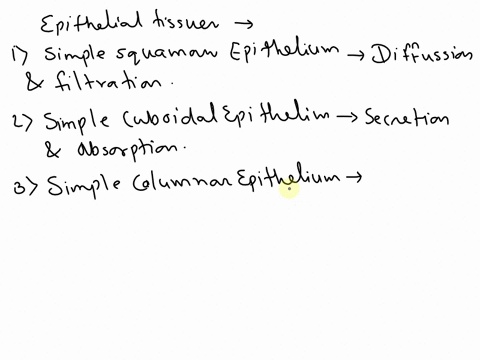 Epithelial tissuer →
1) Simple squaman Epithelium → Diffussion
& filtration.
2) Simple Cuboidal Epithelim → Secretion
& absorption.
3) Simple Columnar Epithelium →